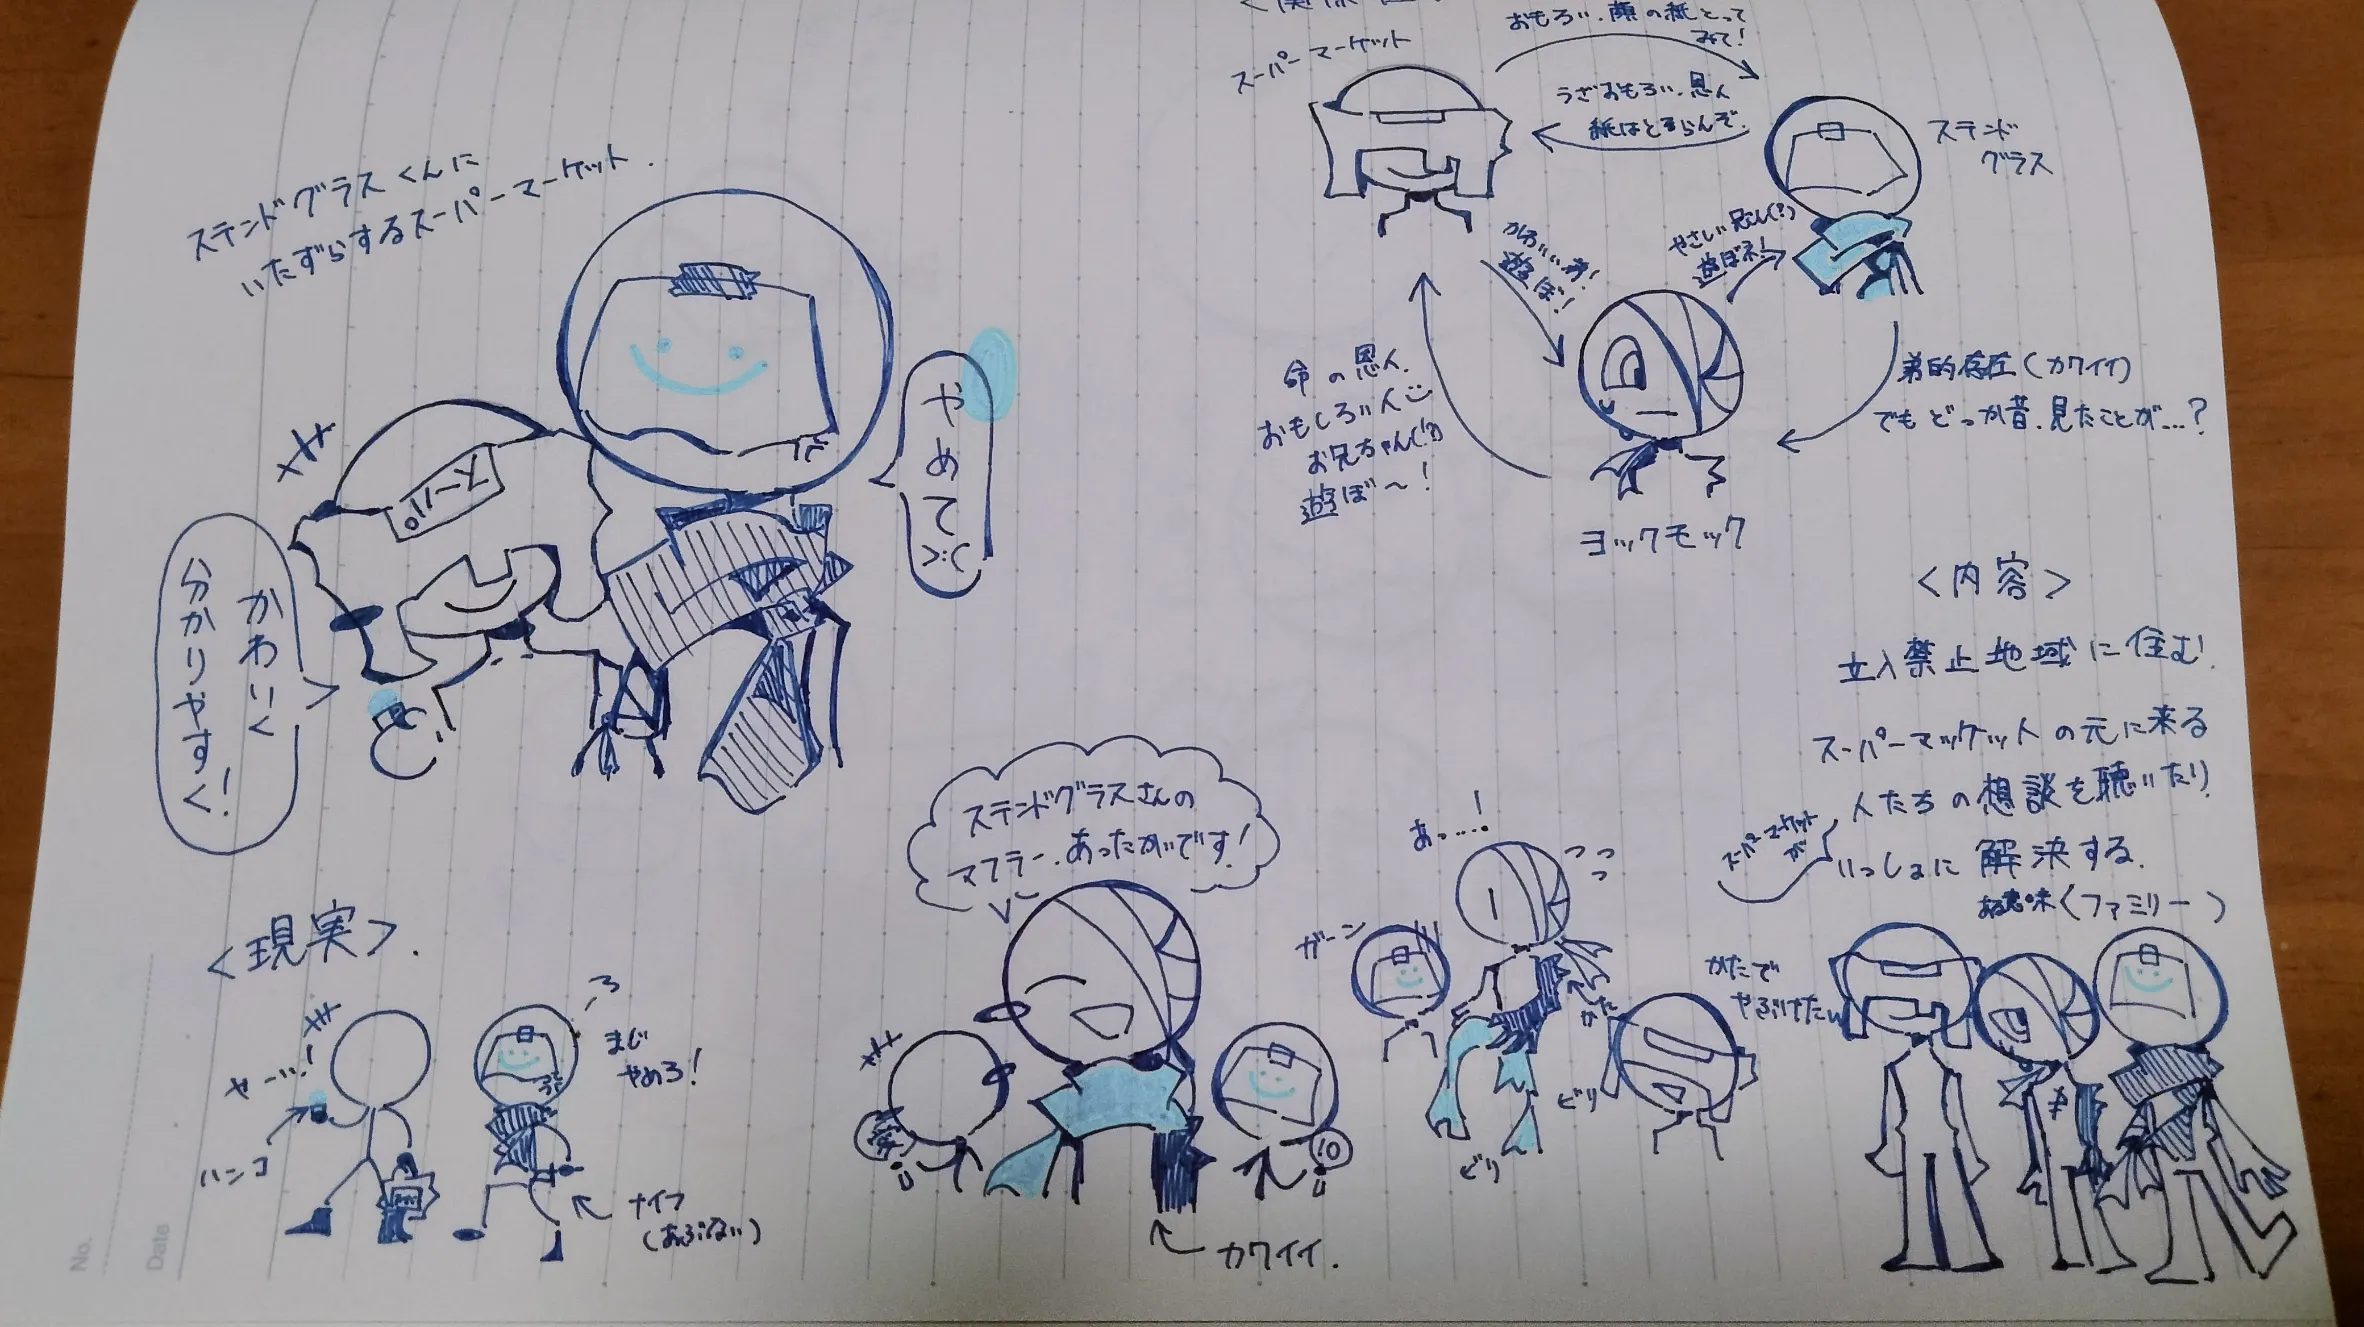 ステンドグラスくんに
いたずらするスーパーマーケット.
やめて
>:(
かわいく
分かりやすく!
スーパーマーケット
おもろい、顔の紙とって
みて!
うざおもろい、恩人
紙はとまらんぞ.
ステンド
グラス
遊ぼ!
やさしい兄さん(?)
遊ぼネ!
命の恩人.
おもしろい人
お兄ちゃん(?)
遊ぼ~!
弟的存在(カワイイ)
でもどっか昔、見たことが...?
ヨックモック
<内容>
立入禁止地域に住む.
スーパーマッケットの元に来る
人たちの想談を聴いたり
スーパーマーケット
が
いっしょに解決する.
ある意味(ファミリー)
<現実>.
やーい!
ハンコ
まじ
やめろ!
ナイフ
(あぶない)
ステンドグラスさんの
マフラー、あったかいです!
カワイイ.
あっ...!
ガーン
かた
ビリ
ビリ
かたで
やぶけたw
No.
Date